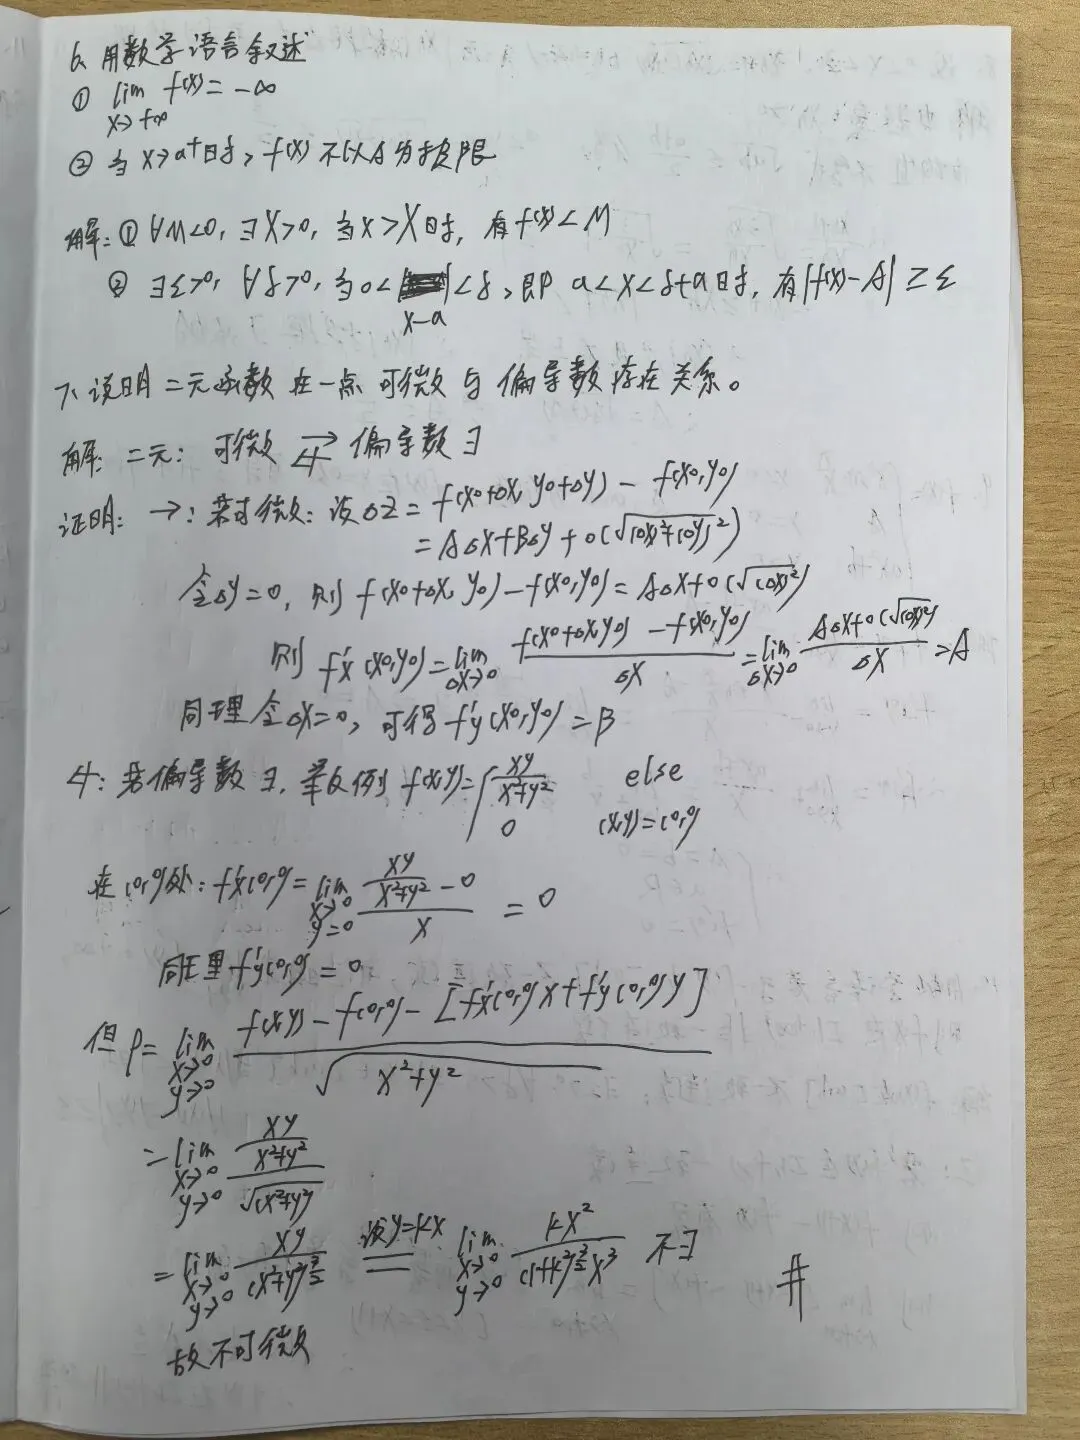 6、用数学语言叙述
① lim f(x) = -∞
x→+∞
② 当 x→a⁺时, f(x) 不以A为极限
解: ① ∀M<0, ∃X>0, 当x>X时, 有f(x)<M
② ∃ε>0, ∀δ>0, 当0<|x-a|<δ, 即 a<x<δ+a时, 有|f(x)-A|≥ε
7、说明二元函数在一点可微与偏导数存在关系。
解: 二元: 可微 ⇄̸ 偏导数∃
证明: →: 若可微: 设ΔZ = f(x0+Δx, y0+Δy) - f(x0,y0)
= AΔx+BΔy+o(√((Δx)²+(Δy)²))
令Δy=0, 则 f(x0+Δx, y0)-f(x0,y0) = AΔx+o(√(Δx)²)
则 f'x(x0,y0) = lim(Δx→0) (f(x0+Δx,y0) - f(x0,y0))/Δx = lim(Δx→0) (AΔx+o(√(Δx)²))/Δx = A
同理令Δx=0, 可得f'y(x0,y0)=B
↚: 若偏导数∃, 举反例 f(x,y) = { xy/(x²+y²) else
0 (x,y)=(0,0)
在(0,0)处: f'x(0,0) = lim(x→0 y=0) (xy/(x²+y²) - 0)/x = 0
同理f'y(0,0) = 0
但 ρ = lim(x→0 y→0) (f(x,y) - f(0,0) - [f'x(0,0)x + f'y(0,0)y])/√(x²+y²)
= lim(x→0 y→0) (xy/(x²+y²))/√(x²+y²)
= lim(x→0 y→0) xy/(x²+y²)^(3/2) 设y=kx == lim(x→0 y→0) kx²/((1+k²)^(3/2)x³) 不∃ #
故不可微